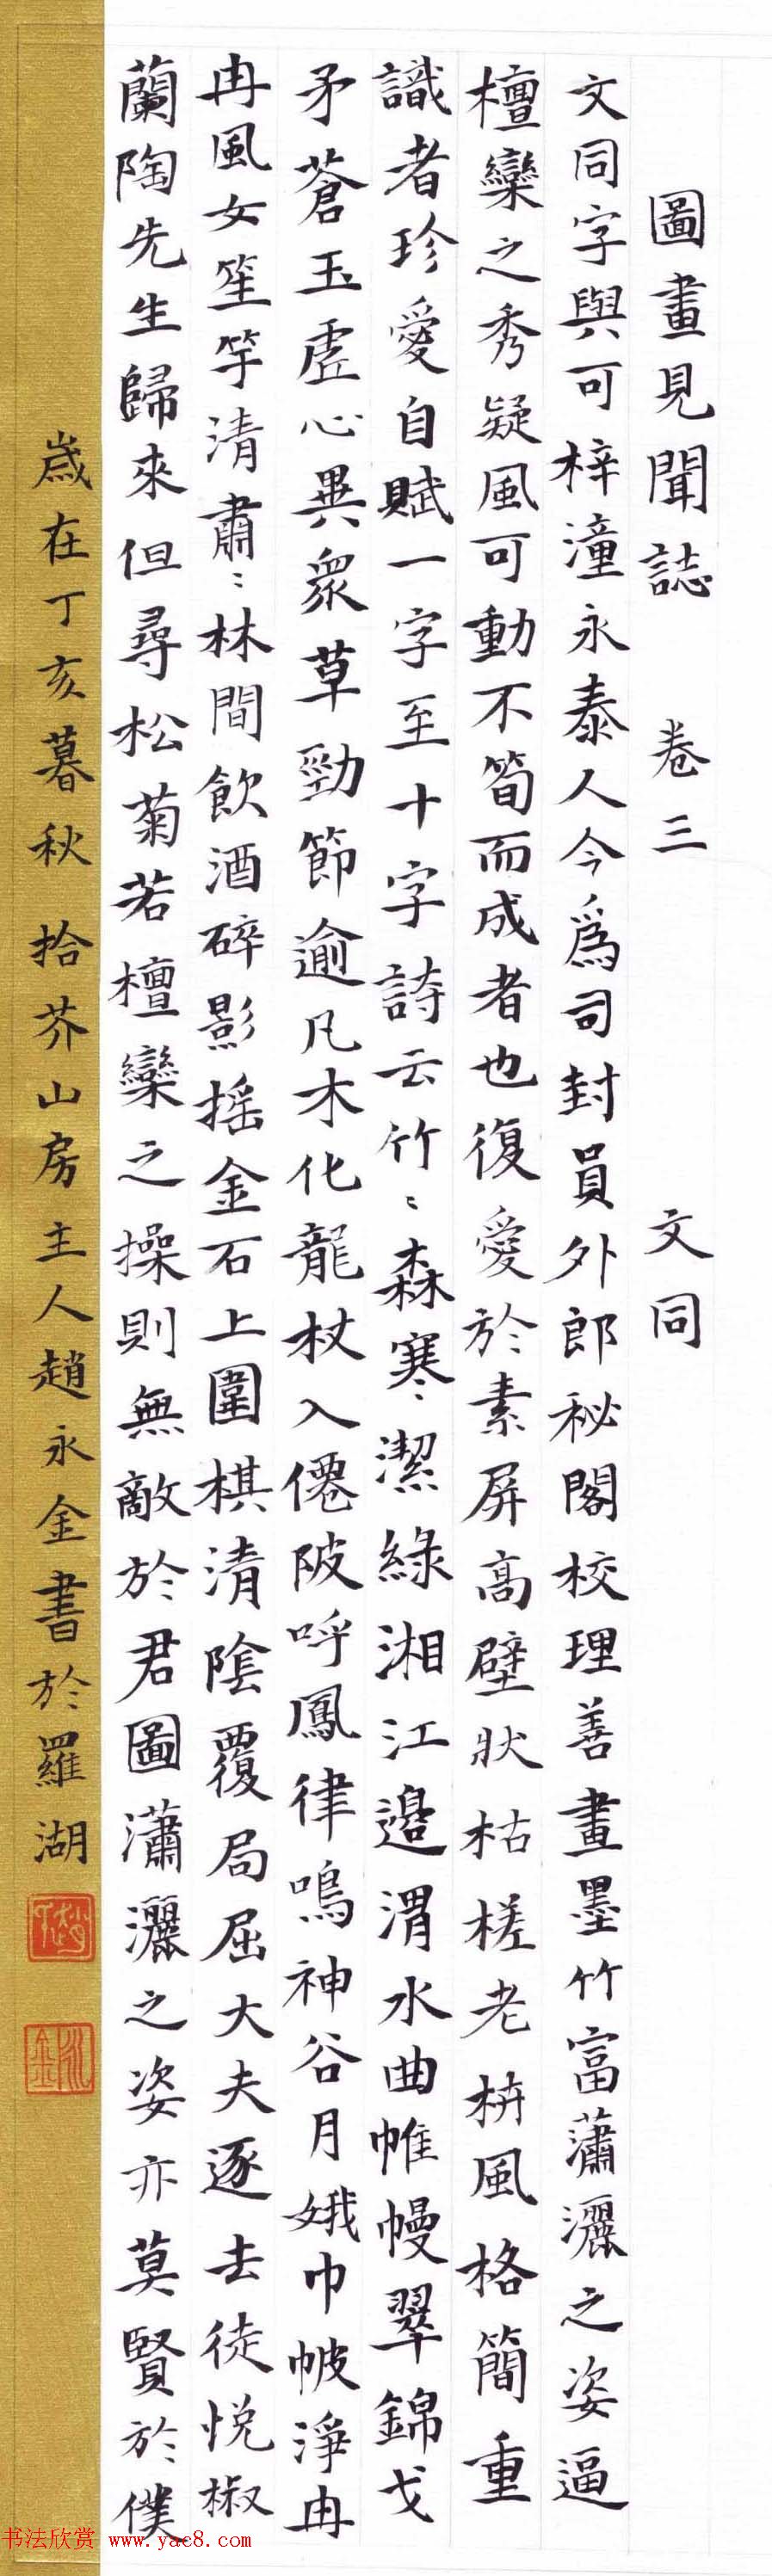 圖畫見聞誌 卷三 文同
文同字與可梓潼永泰人今爲司封員外郎秘閣校理善畫墨竹富蕭灑之姿逼
檀欒之秀疑風可動不筍而成者也復愛於素屏高壁狀枯槎老枿風格簡重
識者珍愛自賦一字至十字詩云竹〻森寒〻潔綠湘江邊渭水曲帷幔翠錦戈
矛蒼玉虛心異眾草勁節逾凡木化龍杖入僊陂呼鳳律鳴神谷月娥巾帔淨冉
冉風女笙竽清肅〻林間飲酒碎影摇金石上圍棋清陰覆局屈大夫逐去徒悅椒
蘭陶先生歸來但尋松菊若檀欒之操則無敵於君圖瀟灑之姿亦莫賢於僕
歲在丁亥暮秋 拾芥山房主人趙永金書於羅湖
永金
书法欣赏 www.yac8.com